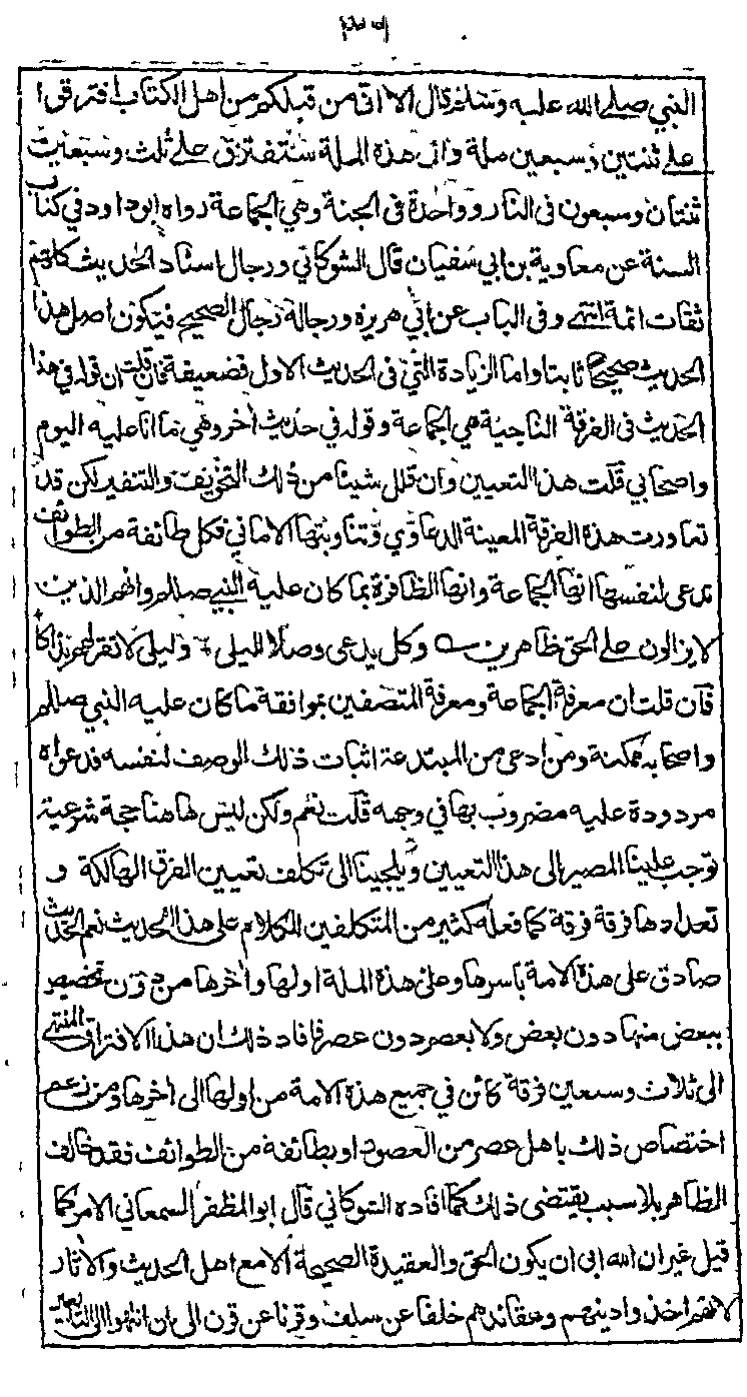 النبي صلى الله عليه وسلم قال الا ان من قبلكم من اهل الكتاب افترقوا
على ثنتين وسبعين ملة وان هذه الملة ستفترق على ثلث وسبعين
ثنتان وسبعون في النار وواحدة في الجنة وهي الجماعة رواه ابوداود في كتاب
السنة عن معاوية بن ابي سفيان قال الشوكاني ورجال اسناد الحديث كلهم
ثقات ائمة انتهى وفي الباب عن ابي هريرة ورجاله رجال الصحيح فيكون اصل هذا
الحديث صحيحا ثابتا واما الزيادة التي في الحديث الاول فضعيفة فان قلت ان قوله في هذا
الحديث في الفرقة الناجية هي الجماعة وقوله في حديث اخر وهي ما انا عليه اليوم
واصحابي قلت هذا التعيين وان قلل شيئا من ذلك التخويف والتنفير لكن قد
تعاورت هذه الفرقة المعينة الدعاوي وتناوبتها الاماني فكل طائفة من الطوائف
تدعى لنفسها انها الجماعة وانها الظافرة بما كان عليه النبي صللم وانهم الذين
لا يزالون على الحق ظاهرين وكل يدعى وصلا لليلى وليلى لا تقر لهم بذاكا
فان قلت ان معرفة الجماعة ومعرفة المتصفين بموافقة ما كان عليه النبي صللم
واصحابه ممكنة ومن ادعى من المبتدعة اثبات ذلك الوصف لنفسه فدعواه
مردودة عليه مضروب بها في وجهه قلت نعم ولكن ليس هاهنا حجة شرعية
توجب علينا المصير الى هذا التعيين ويلجينا الى تكلف تعيين الفرق الهالكة و
تعدادها فرقة فرقة كما فعله كثير من المتكلفين للكلام على هذا الحديث نعم الحديث
صادق على هذه الامة باسرها وعلى هذه الملة اولها واخرها من دون تخصيص
ببعض منها دون بعض ولا بعصر دون عصر فافاد ذلك ان هذا الافتراق المنتهي
الى ثلاث وسبعين فرقة كائن في جميع هذه الامة من اولها الى اخرها ومن زعم
اختصاص ذلك باهل عصر من العصور او بطائفة من الطوائف فقد خالف
الظاهر بلا سبب يقتضى ذلك كما افاده الشوكاني قال ابو المظفر السمعاني الامر كما
قيل غير ان الله ابى ان يكون الحق والعقيدة الصحيحة الا مع اهل الحديث والآثار
لانهم اخذوا دينهم وعقائدهم خلفا عن سلف وقرنا عن قرن الى ان انتهوا الى التابعين